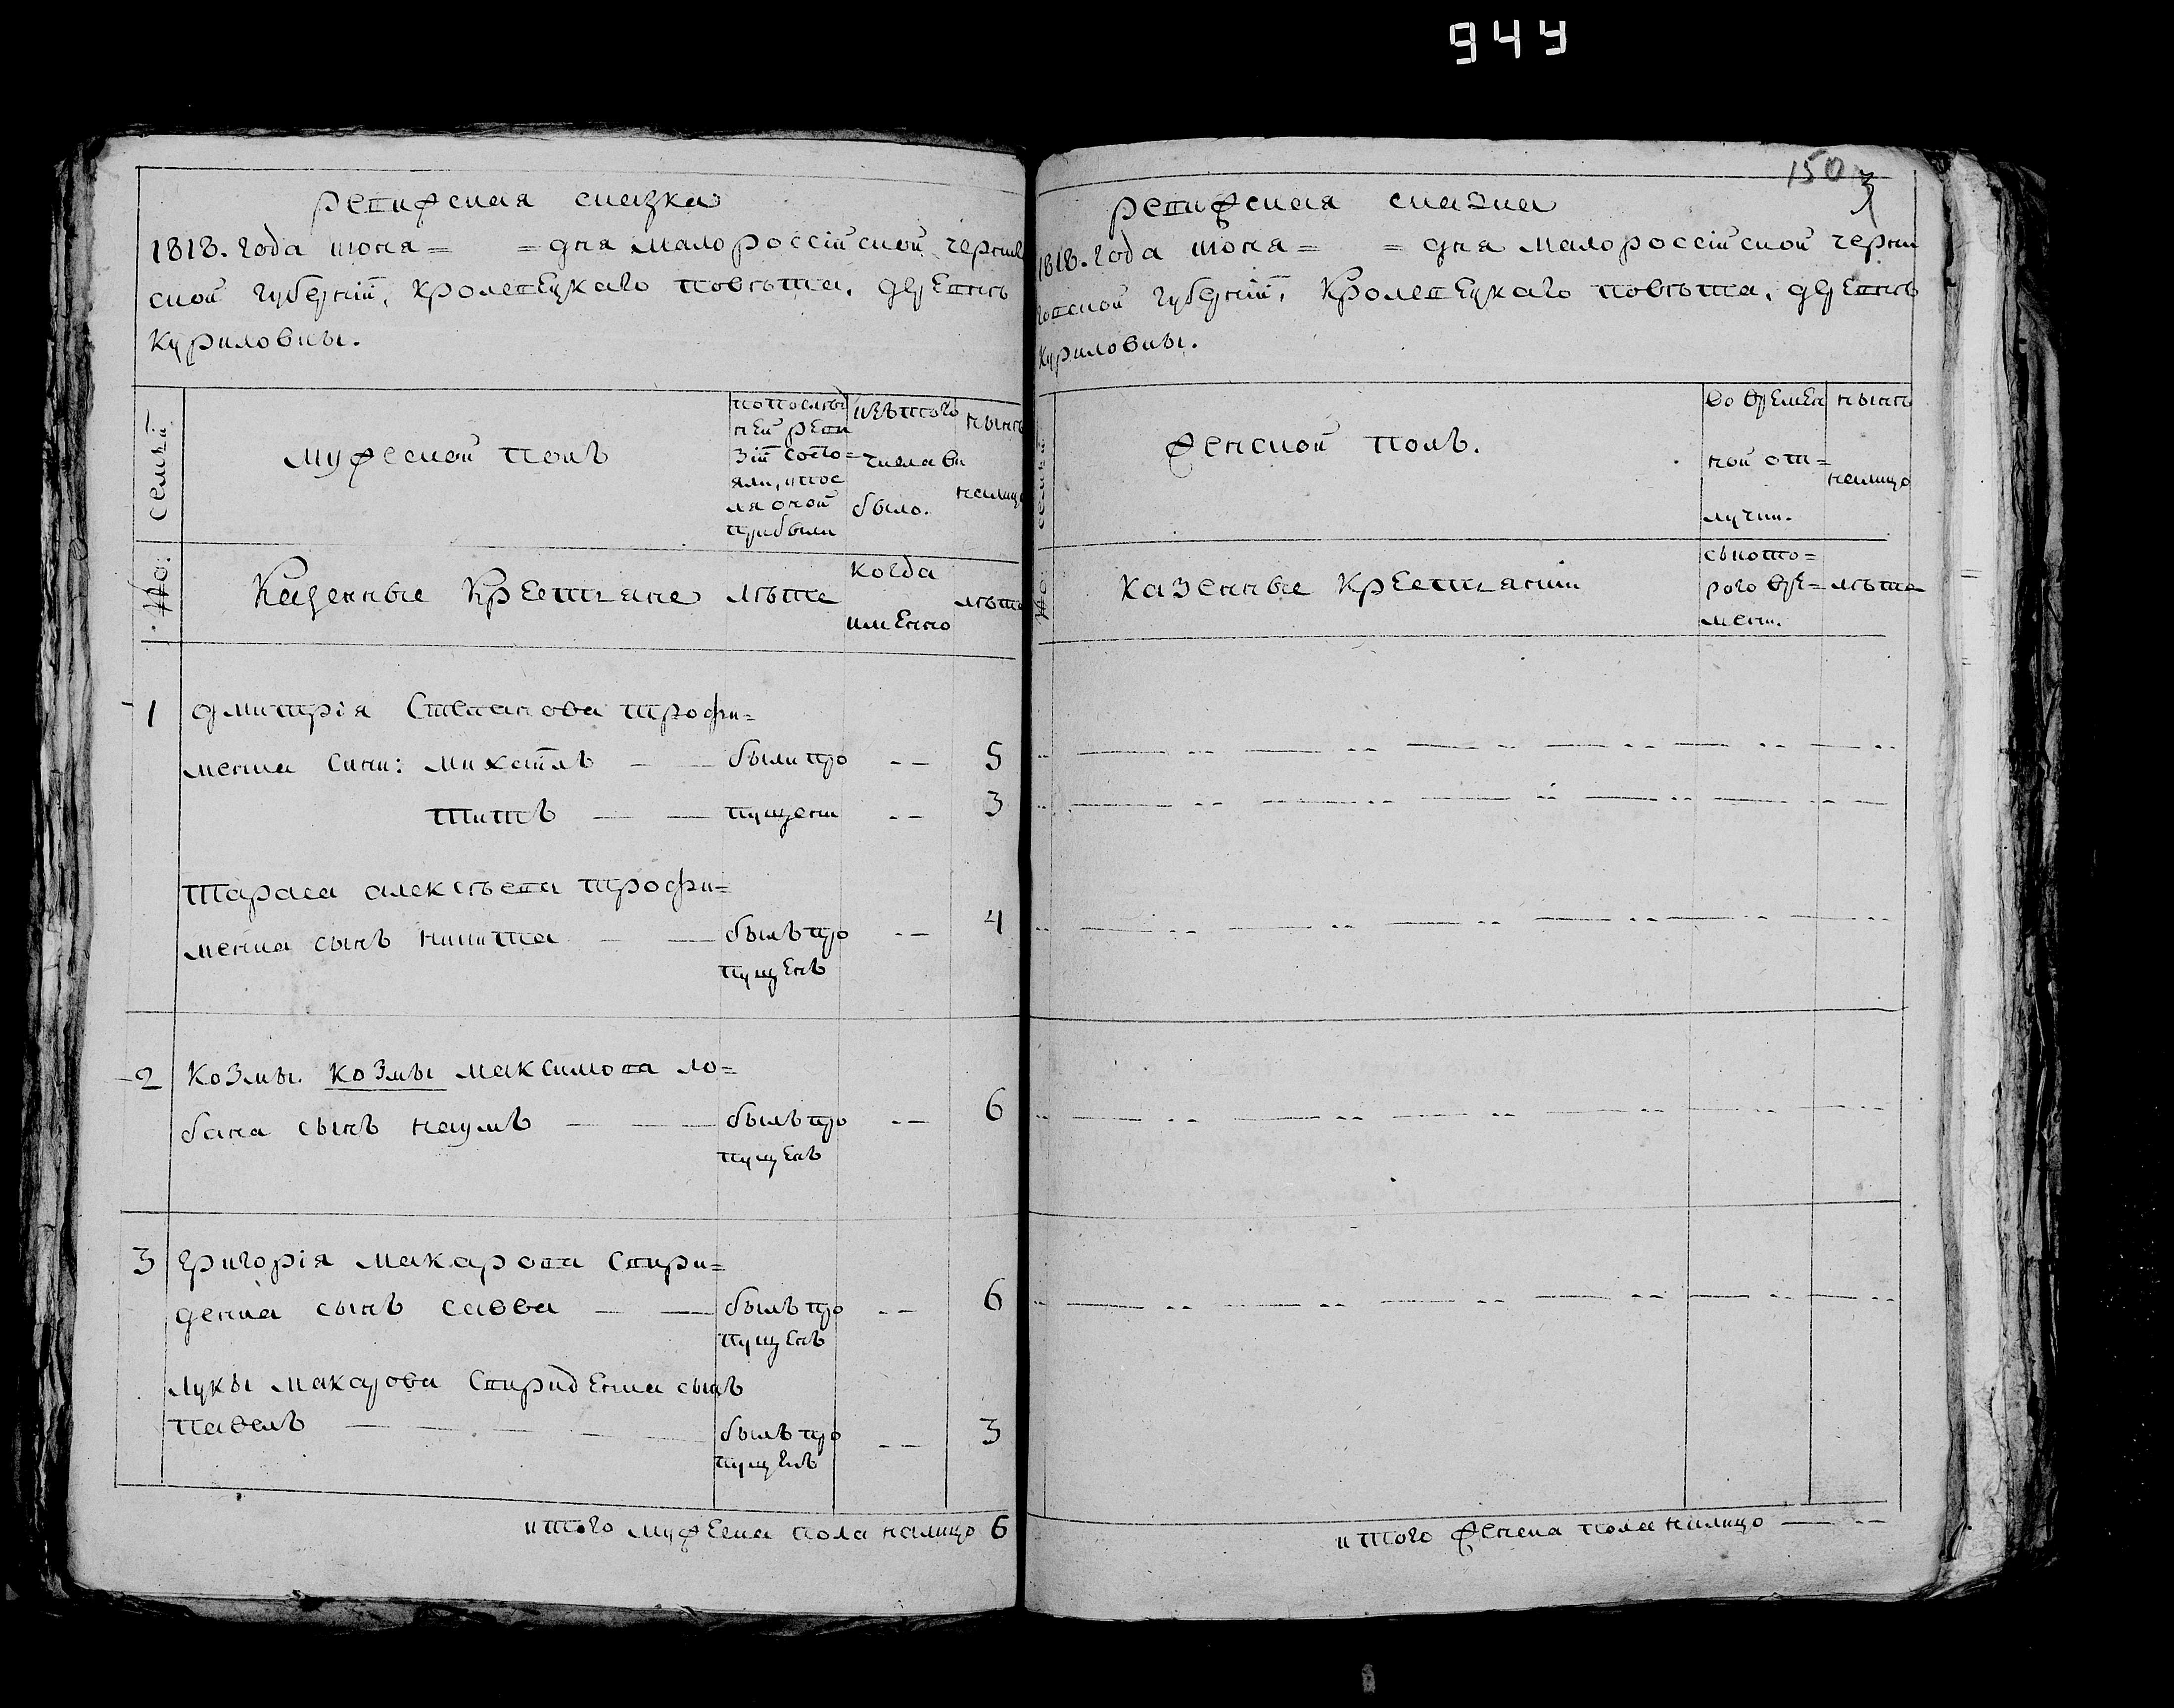 944
Ревижская сказка
1818. года июня = = дня малороссійской чернигов
ской губерній, Кролевецкаго повѣта, древнѣ
Куриловки.
№: семей
мужеской полъ
попослед
ней реви
зіи состо=
яли, и пос
ля оной
прибыли
изътого
числа вы
было.
нынѣ
налицо
Казенные Крестяне
лѣта
когда
именно
лѣта
1 дмитрія Степанова трофи=
менка сини: михайлъ — — были про -- 5
титъ — — пущени -- 3
тараса алексѣева трофи=
менка сынъ никита — — былъ про -- 4
пущенъ
2 козмы. козмы максимова ло=
бана сынъ наумъ — — былъ про -- 6
пущенъ
3 григорія макарова спири=
денка сынъ савва — — былъ про -- 6
пущенъ
луки макарова спириденка сынъ
павелъ — — — былъ про -- 3
пущенъ
итого мужеска пола налицо 6
150
3
Ревижская сказка
1818. года июня = = дня малороссійской черни
говской губерній, Кролевецкаго повѣта, древнѣ
Куриловки.
№: семей
женской полъ.
во времен
ной отъ=
лучки.
нынѣ
налицо
казенные крестянки
съкото=
рого вре=
мени.
лѣта
итого женска пола налицо — --